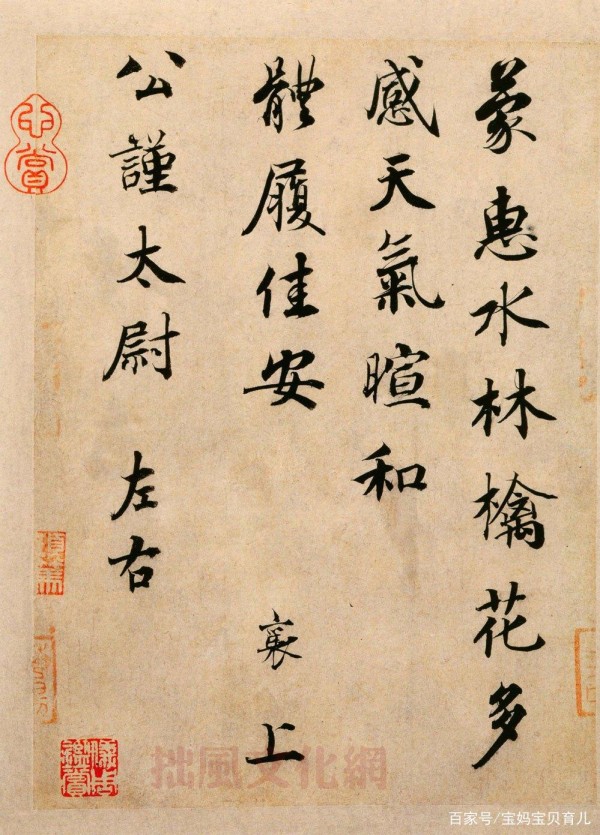 蒙惠水林檎花多
感天氣暄和
體履佳安
襄上
公謹太尉
左右
拙風文化網
百家号/宝妈宝贝育儿